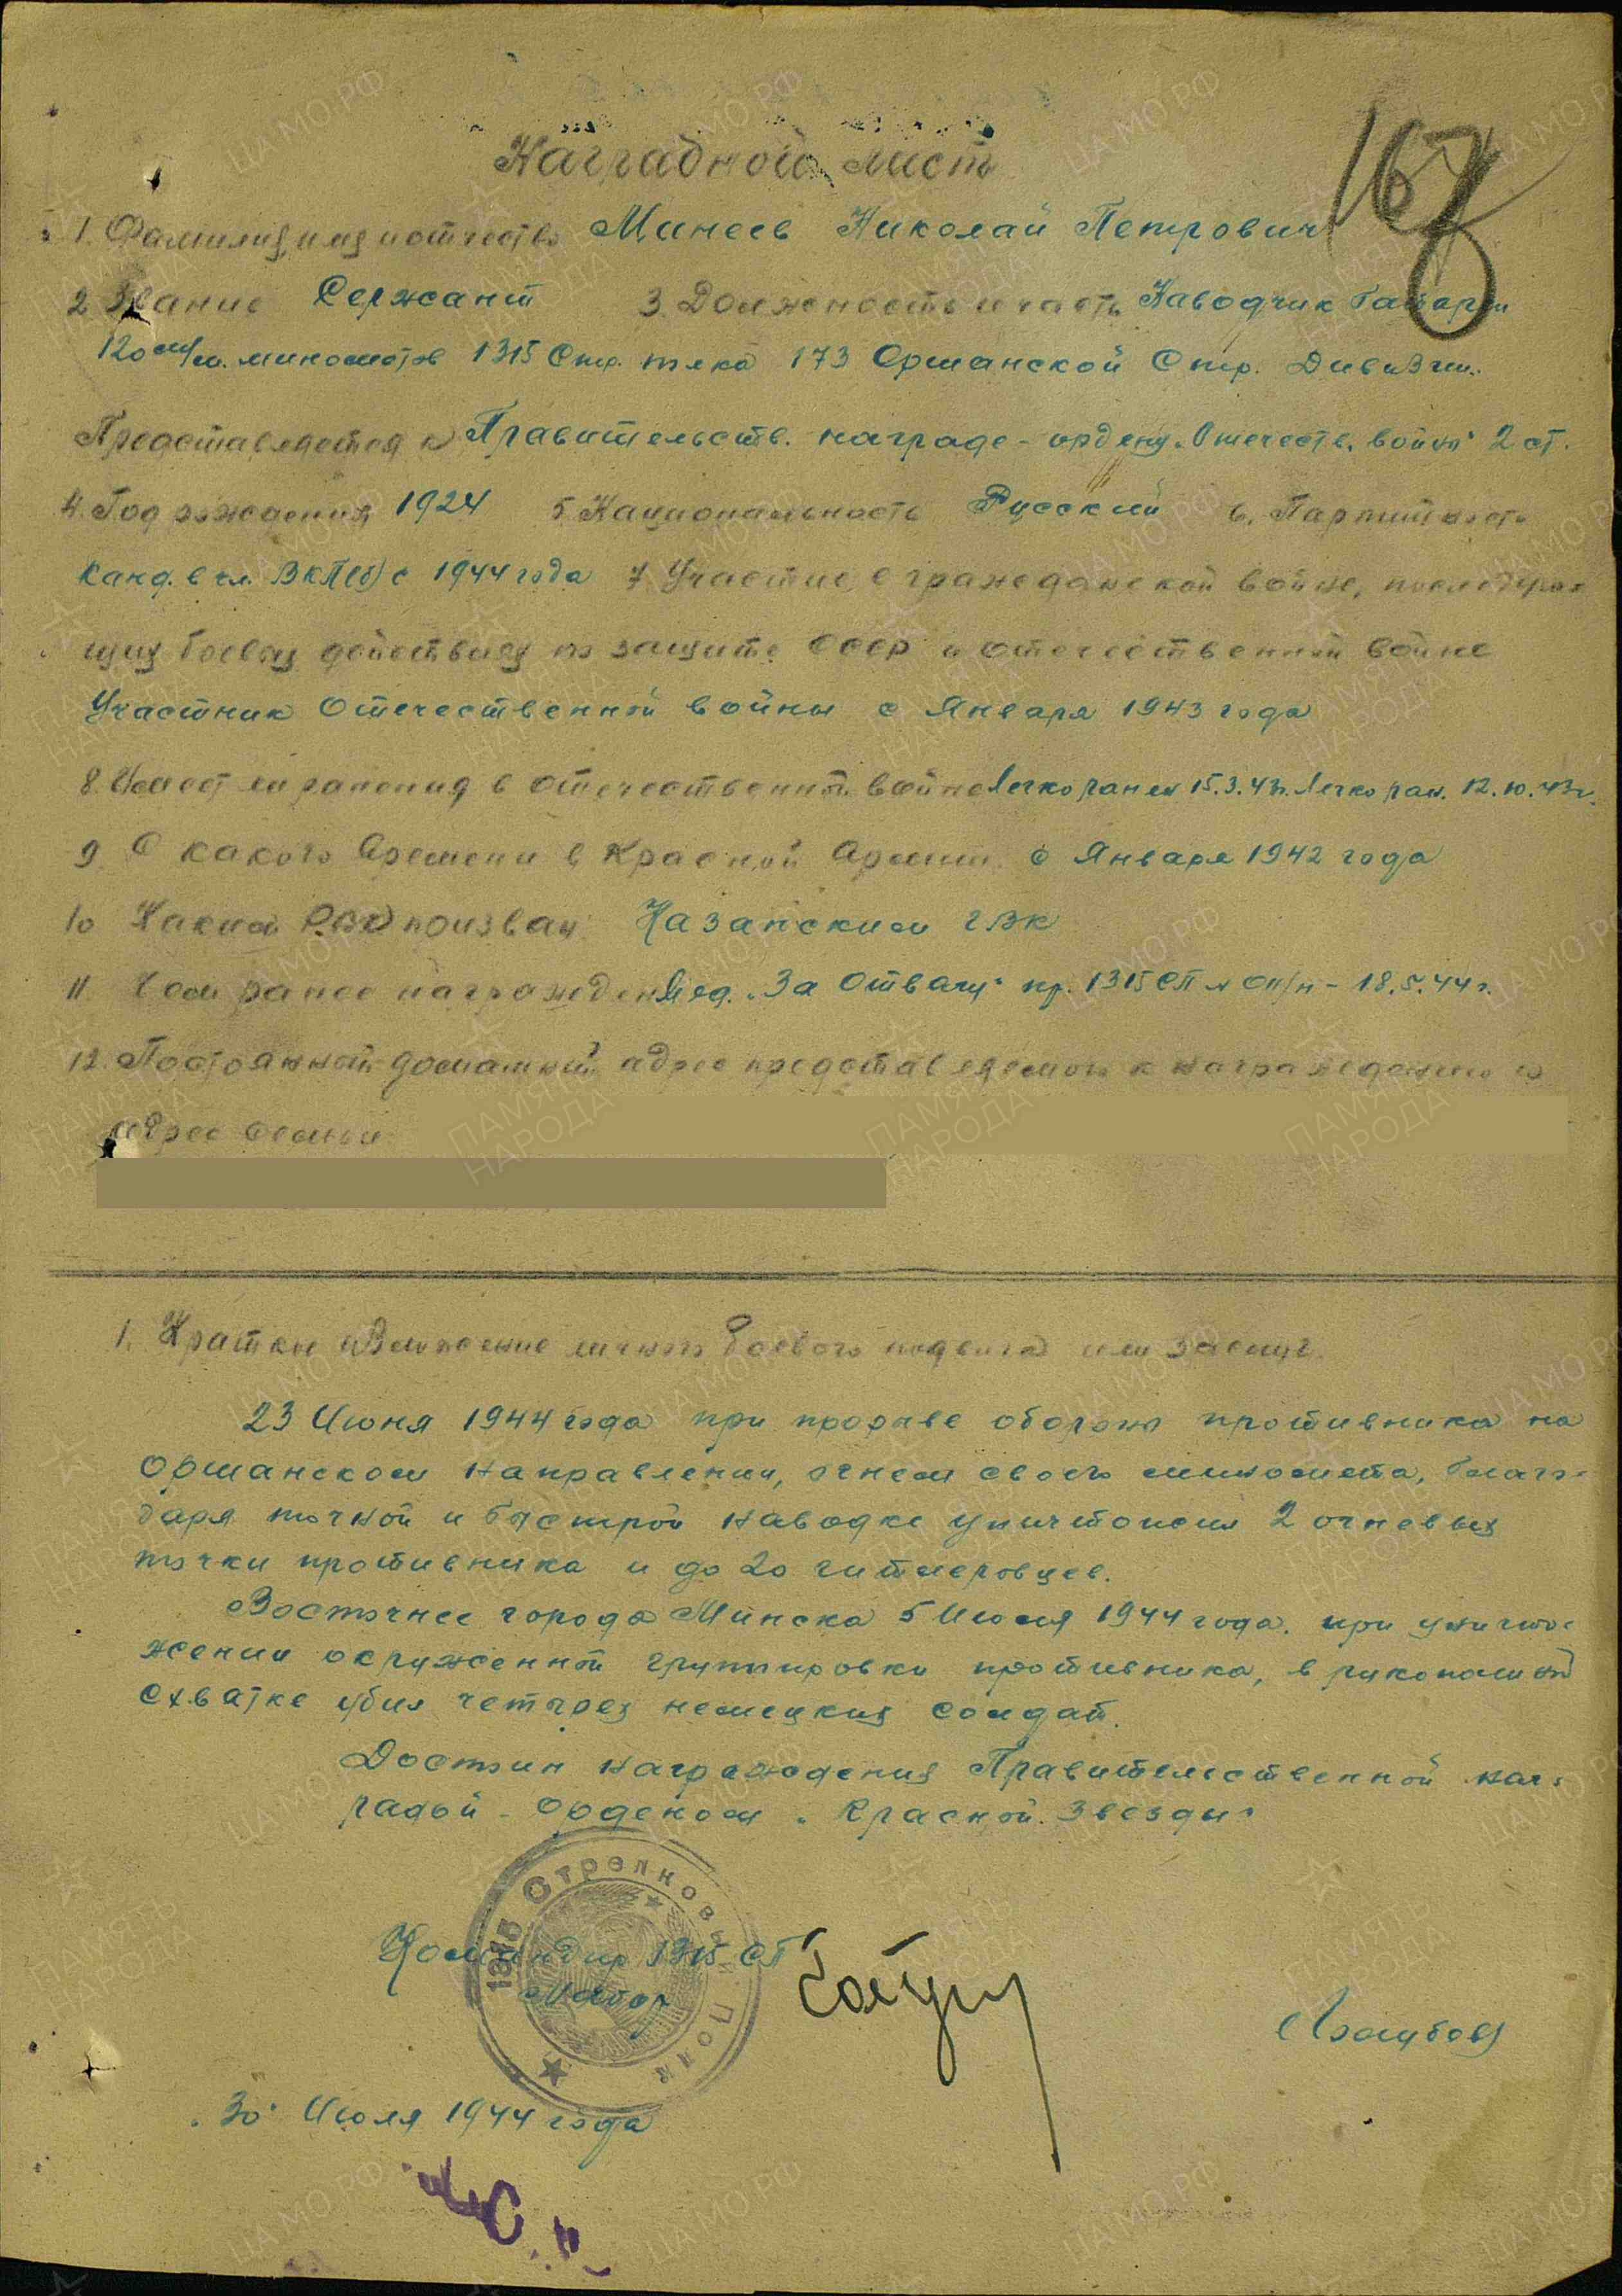 Наградной лист
167
8
1. Фамилия, имя и отчество Минеев Николай Петрович
2 Звание Сержант 3. Должность и часть Наводчик батареи
120 м/м. минометов 1315 Стр. полка 173 Оршанской Стр. Дивизии.
Представляется к Правительств. награде - ордену "Отечеств. войны" 2 ст.
4. Год рождения 1924 5. Национальность Русский 6. Партийность
Канд. в чл. ВКП(б) с 1944 года 7. Участие в гражданской войне, последую-
щих боевых действиях по защите СССР и отечественной войне
Участник Отечественной войны с Января 1943 года
8. Имеет ли ранения в отечественной войне Легко ранен 15.3.43г. Легко ран. 12.10.43г.
9. С какого времени в Красной Армии с Января 1942 года
10 Каким РВК призван Казанским ГВК
11. Чем ранее награжден Мед. "За Отвагу" пр. 1315 СП 18.5.44г.
12. Постоянный домашний адрес представляемого к награждению и
адрес семьи
1. Краткое изложение личного боевого подвига или заслуг.
23 Июня 1944 года при прорыве обороны противника на
Оршанском направлении, огнем своего миномета, благо-
даря точной и быстрой наводке уничтожил 2 огневых
точки противника и до 20 гитлеровцев.
Восточнее города Минска 5 Июля 1944 года. при уничто-
жении окруженной группировки противника, в рукопашной
схватке убил четырех немецких солдат.
Достоин награждения Правительственной наг-
радой - Орденом "Красной Звезды"
1315 Стрелковый Полк
Командир 1315 СП
Майор
"30" Июля 1944 года
ЦАМО.РФ
ПАМЯТЬ НАРОДА